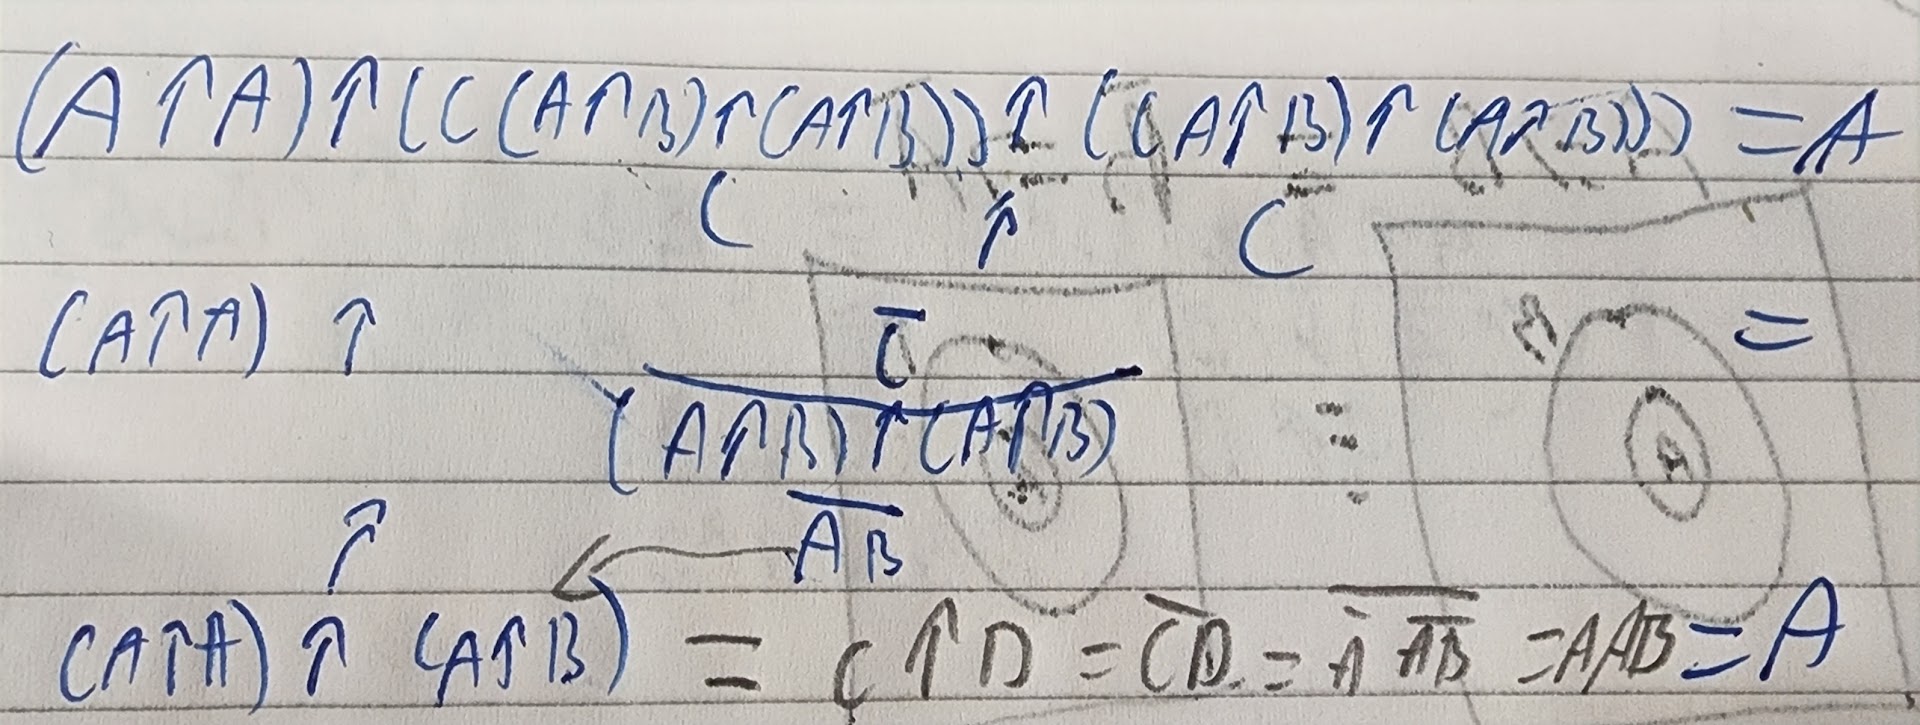 (A↑A)↑(((A↑B)↑(A↑B))↑((A↑B)↑(A↑B))) = A
C ↑ C
(A↑A) ↑ C̅ =
(A↑B)↑(A↑B)
↑ A̅B̅
(A↑A) ↑ (A↑B) = C↑D = C̅D̅ = A̅ A̅B̅ = AAB = A